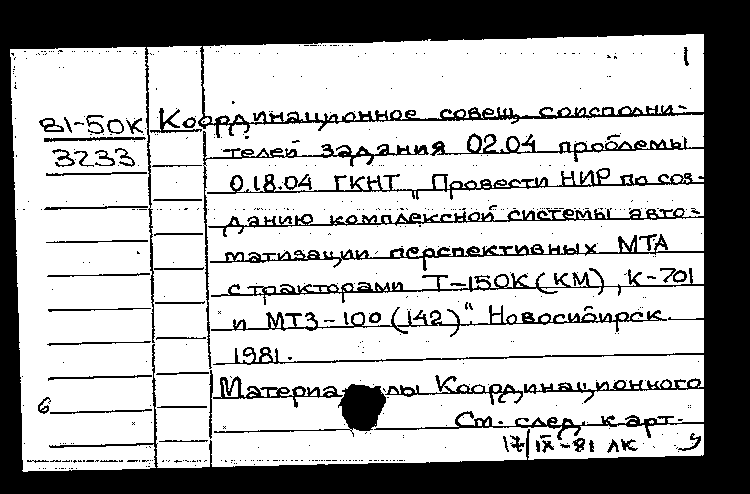 1
81-50К Координационное совещ. соисполни-
3233 телей задания 02.04 проблемы
0.18.04 ГКНТ „Провести НИР по соз-
данию комплексной системы авто-
матизации перспективных МТА
с тракторами Т-150К(КМ), К-701
и МТЗ-100(142)". Новосибирск.
1981.
Материалы Координационного
6
См. след. карт.
17/IX-81 ЛК